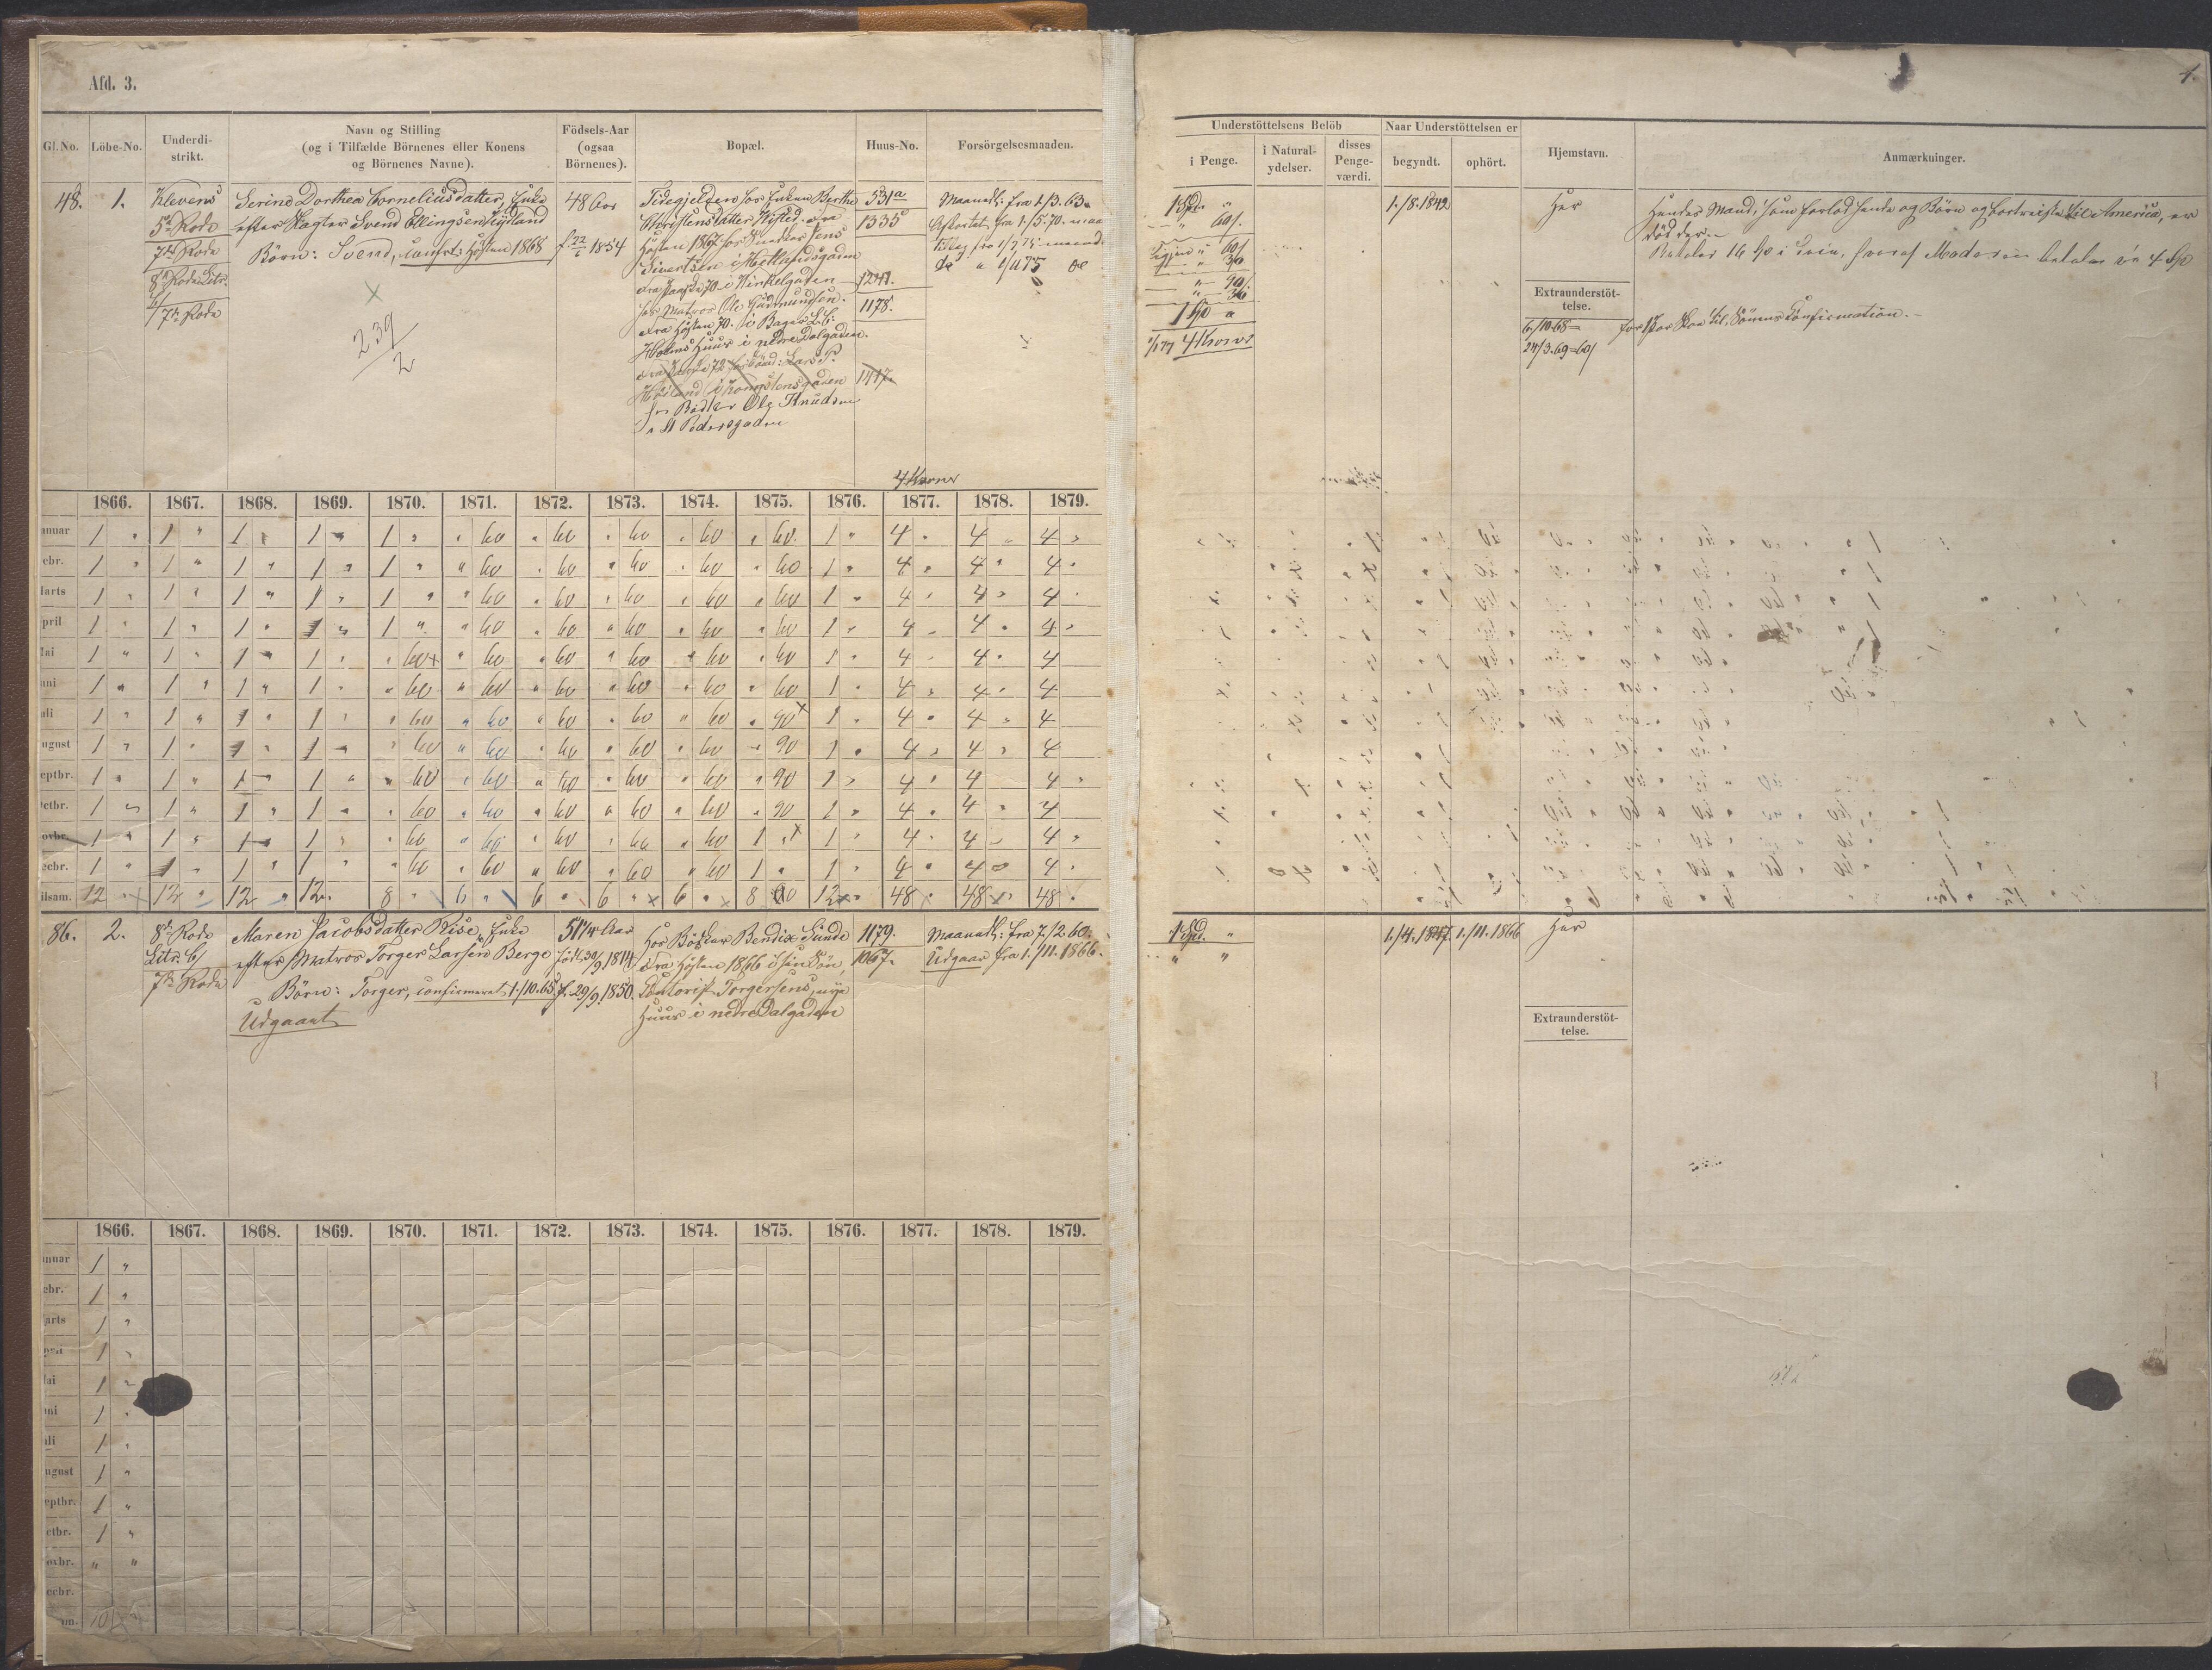 Afd. 3.
4.
Gl. No.
Löbe-No.
Underdi-
strikt.
Navn og Stilling
(og i Tilfælde Börnenes eller Konens
og Börnenes Navne).
Födsels-Aar
(ogsaa
Börnenes).
Bopæl.
Huus-No.
Forsörgelsesmaaden.
Understöttelsens Belöb
i Penge.
i Natural-
ydelser.
disses
Penge-
værdi.
Naar Understöttelsen er
begyndt.
ophört.
Hjemstavn.
Anmærkninger.
48. 1.
Klevens
5te Rode
7de Rode
8de Rode Litr.
b/
7de Rode
Serine Dorthea Corneliusdatter, Enke
efter Slagter Svend Ellingsen
Börn: Svend, confirt: Hösten 1868
239
2
48 Aar
f. 22/6 1854
hos Enken Berthe
Christensdatter
Hösten 1867 hos Snedker Jens
Sivertsen i Hetlandsgaden
fra 70 i Vinkelgaden
hos Matros Ole Gudmundsen.
fra Hösten 70. i Bager
Holms Huus i nedre Dalgaden.
Höiland i Kongstensgaden
hos Bödker Ole Knudsen
i St Pedersgaden
531a
1335
1241.
1178.
1417.
Maanedl: fra 1/3. 63.
fra 1/5. 70.
Tillæg fra 1/7 75
do " 1/11 75 do
1 Spd. "
" 60/.
" 60/.
" 30
" 90/.
" 30
1 Sp "
1/1 77 4 Kroner
1./8. 1842
Her
Hendes Mand, som forlod hende og Börn og bortreiste til America, er
död der.
Betaler 16 Sp i Leie, hvoraf Moderen betaler 4 Sp
Extraunderstöt-
telse.
6/10 68 =
for Skoe til Sönnens Confirmation.
24/3. 69 = 60/
4 Kroner
1866. 1867. 1868. 1869. 1870. 1871. 1872. 1873. 1874. 1875. 1876. 1877. 1878. 1879.
anuar 1 " 1 " 1 " 1 " 1 " " 60 " 60 " 60 " 60 " 60 1 " 4 " 4 " 4 "
ebr. 1 " 1 " 1 " 1 " 1 " " 60 " 60 " 60 " 60 " 60 1 " 4 " 4 " 4 "
arts 1 " 1 " 1 " 1 " 1 " " 60 " 60 " 60 " 60 " 60 1 " 4 " 4 " 4 "
pril 1 " 1 " 1 " 1 " 1 " " 60 " 60 " 60 " 60 " 60 1 " 4 " 4 " 4 "
ai 1 " 1 " 1 " 1 " " 60 x " 60 " 60 " 60 " 60 " 60 1 " 4 " 4 " 4
uni 1 " 1 " 1 " 1 " " 60 " 60 " 60 " 60 " 60 " 60 1 " 4 " 4 " 4
uli 1 " 1 " 1 " 1 " " 60 " 60 " 60 " 60 " 60 " 90 x 1 " 4 " 4 " 4
ugust 1 " 1 " 1 " 1 " " 60 " 60 " 60 " 60 " 60 " 90 1 " 4 " 4 " 4
eptbr. 1 " 1 " 1 " 1 " " 60 " 60 " 60 " 60 " 60 " 90 1 " 4 " 4 4 "
ctbr. 1 " 1 " 1 " 1 " " 60 " 60 " 60 " 60 " 60 " 90 1 " 4 " 4 " 4
ovbr. 1 " 1 " 1 " 1 " " 60 " 60 " 60 " 60 " 60 1 " x 1 " 4 " 4 " 4 "
ecbr. 1 " 1 " 1 " 1 " " 60 " 60 " 60 " 60 " 60 1 " 1 " 4 " 4 " 4 "
ilsam. 12 " 12 " 12 " 12 " 8 " 6 " 6 " 6 " 6 " 8 12 " 48 " 48 " 48 "
86. 2.
8de Rode
Litr. b/
7de Rode
Maren Jacobsdatter Riise, Enke
efter Matros Torger Larsen Berge
Börn: Torger, confirmeret 1/10. 65.
Udgaaet
51 3/4 Aar
föd 30/9 1814
f. 29/9. 1850.
hos Bödker Bendix Sunde
fra Hösten 1866 i sin Sön,
Contorist Torgersens, nye
Huus i nedre Dalgaden
1179.
1067.
Maanedl: fra 7./2. 60.
Udgaar fra 1./11. 1866.
1 Spd. "
" "
1./4. 1847. 1./11. 1866
Her
Extraunderstöt-
telse.
1866. 1867. 1868. 1869. 1870. 1871. 1872. 1873. 1874. 1875. 1876. 1877. 1878. 1879.
anuar 1 "
ebr. 1 "
arts 1 "
pril 1 "
ai 1 "
uni 1 "
uli 1 "
ugust 1 "
eptbr. 1 "
ctbr. 1 "
ovbr. " "
ecbr.
10